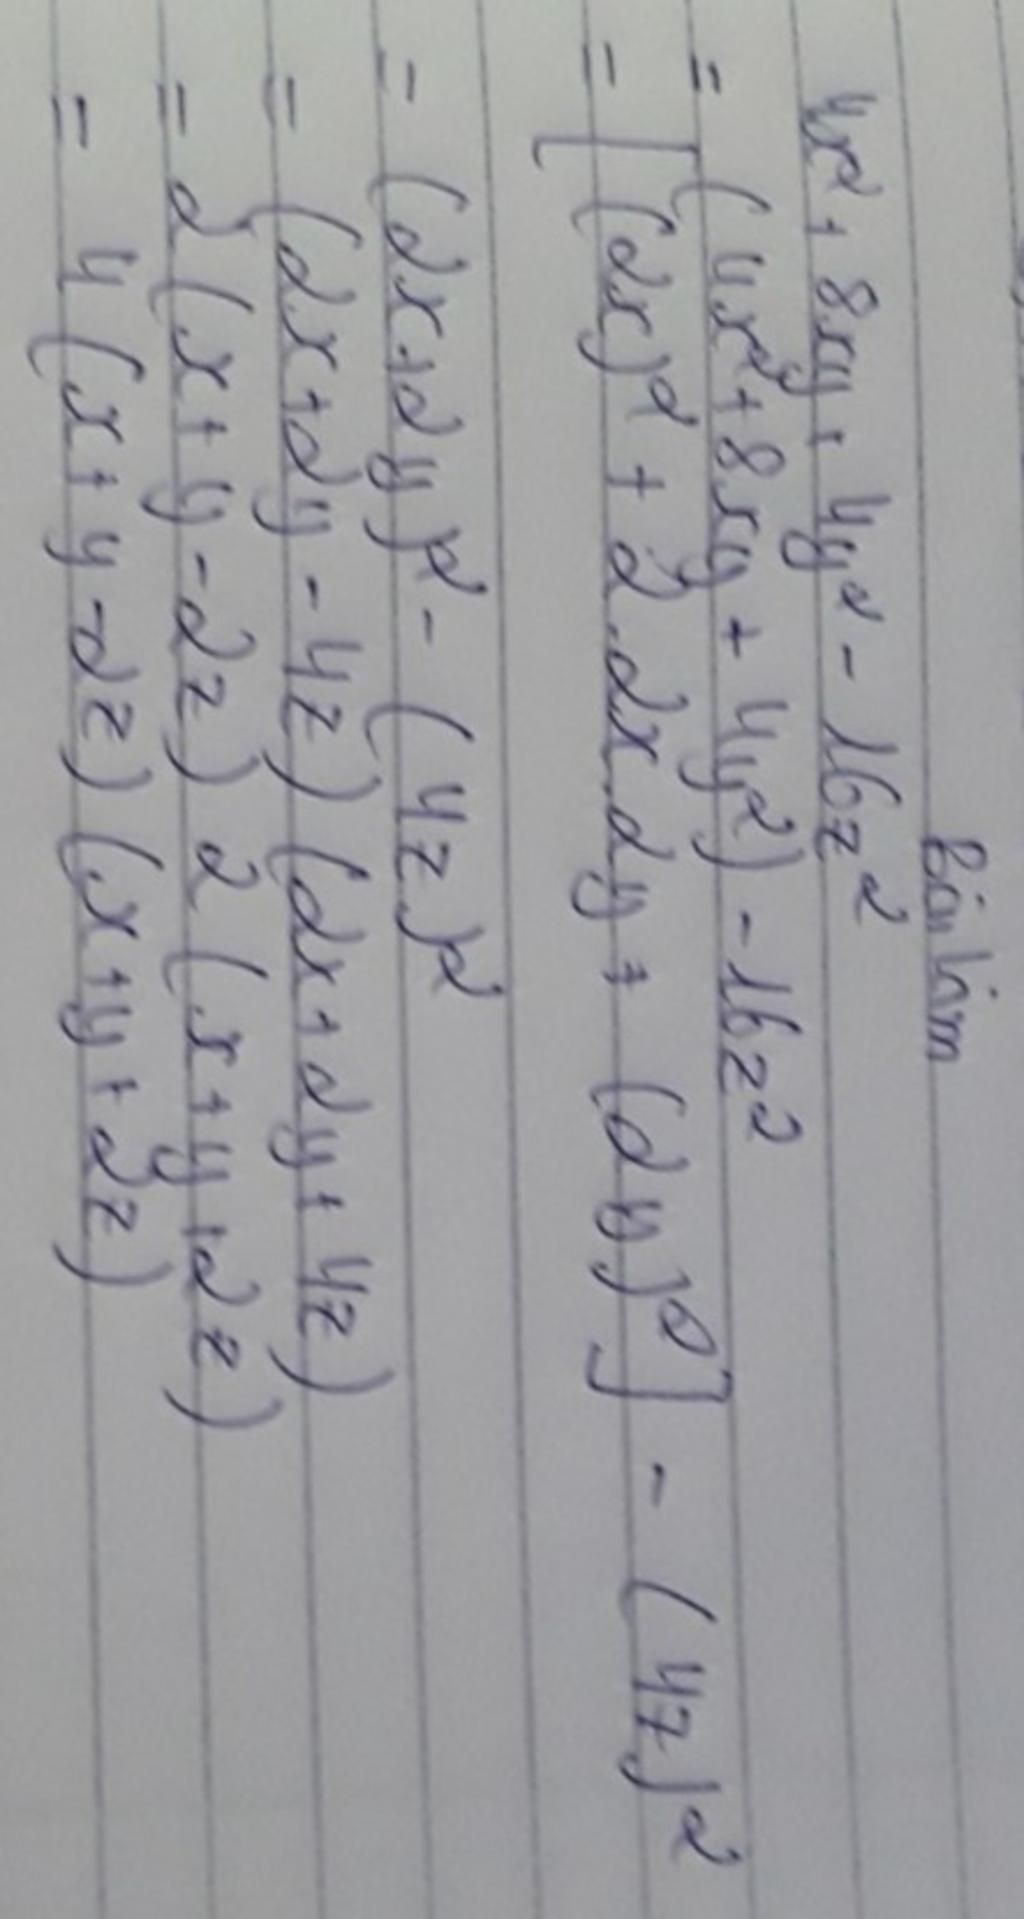 Bài làm
4x² + 8xy + 4y² - 16z²
= (4x² + 8xy + 4y²) - 16z²
= [(2x)² + 2.2x.2y + (2y)²] - (4z)²
= (2x+2y)² - (4z)²
= (2x+2y-4z)(2x+2y+4z)
= 2(x+y-2z)2(x+y+2z)
= 4(x+y-2z)(x+y+2z)